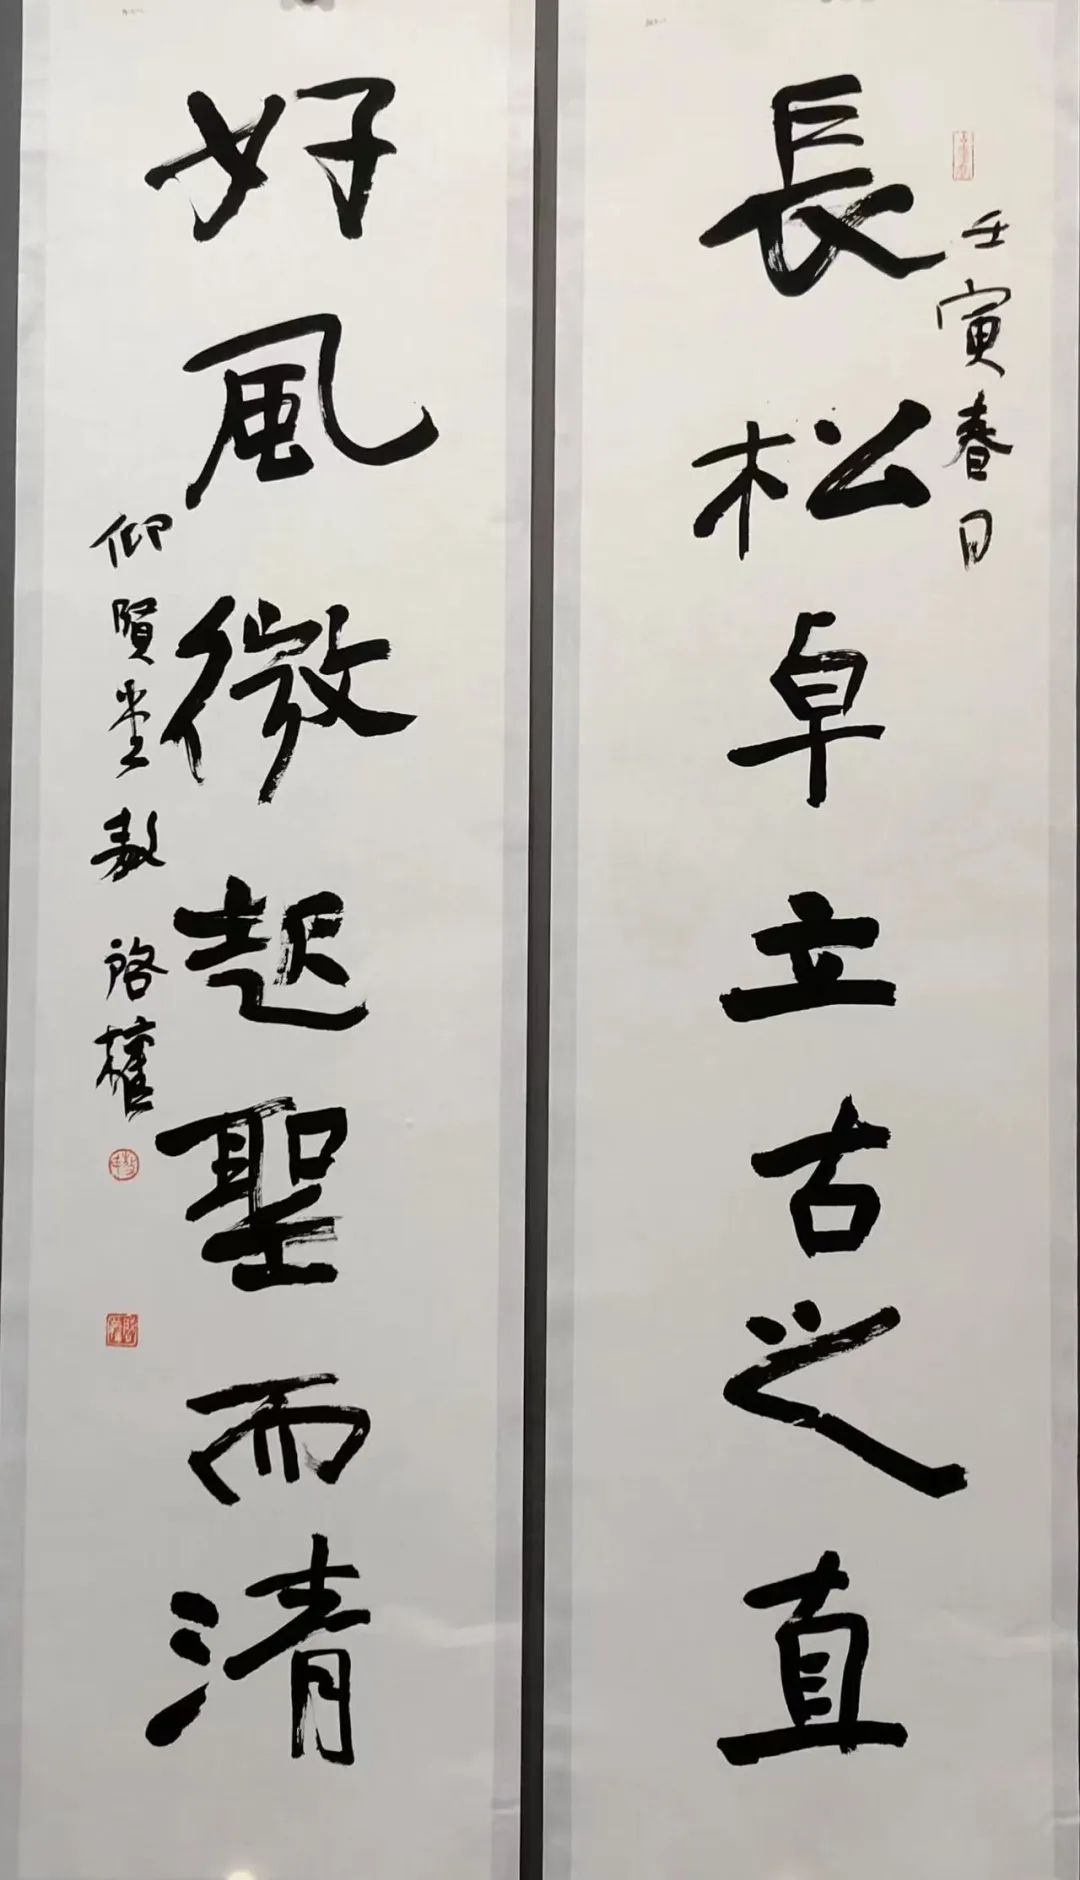 壬寅春日
長松卓立古之直
好風微起聖而清
仰賢堂敖啓權